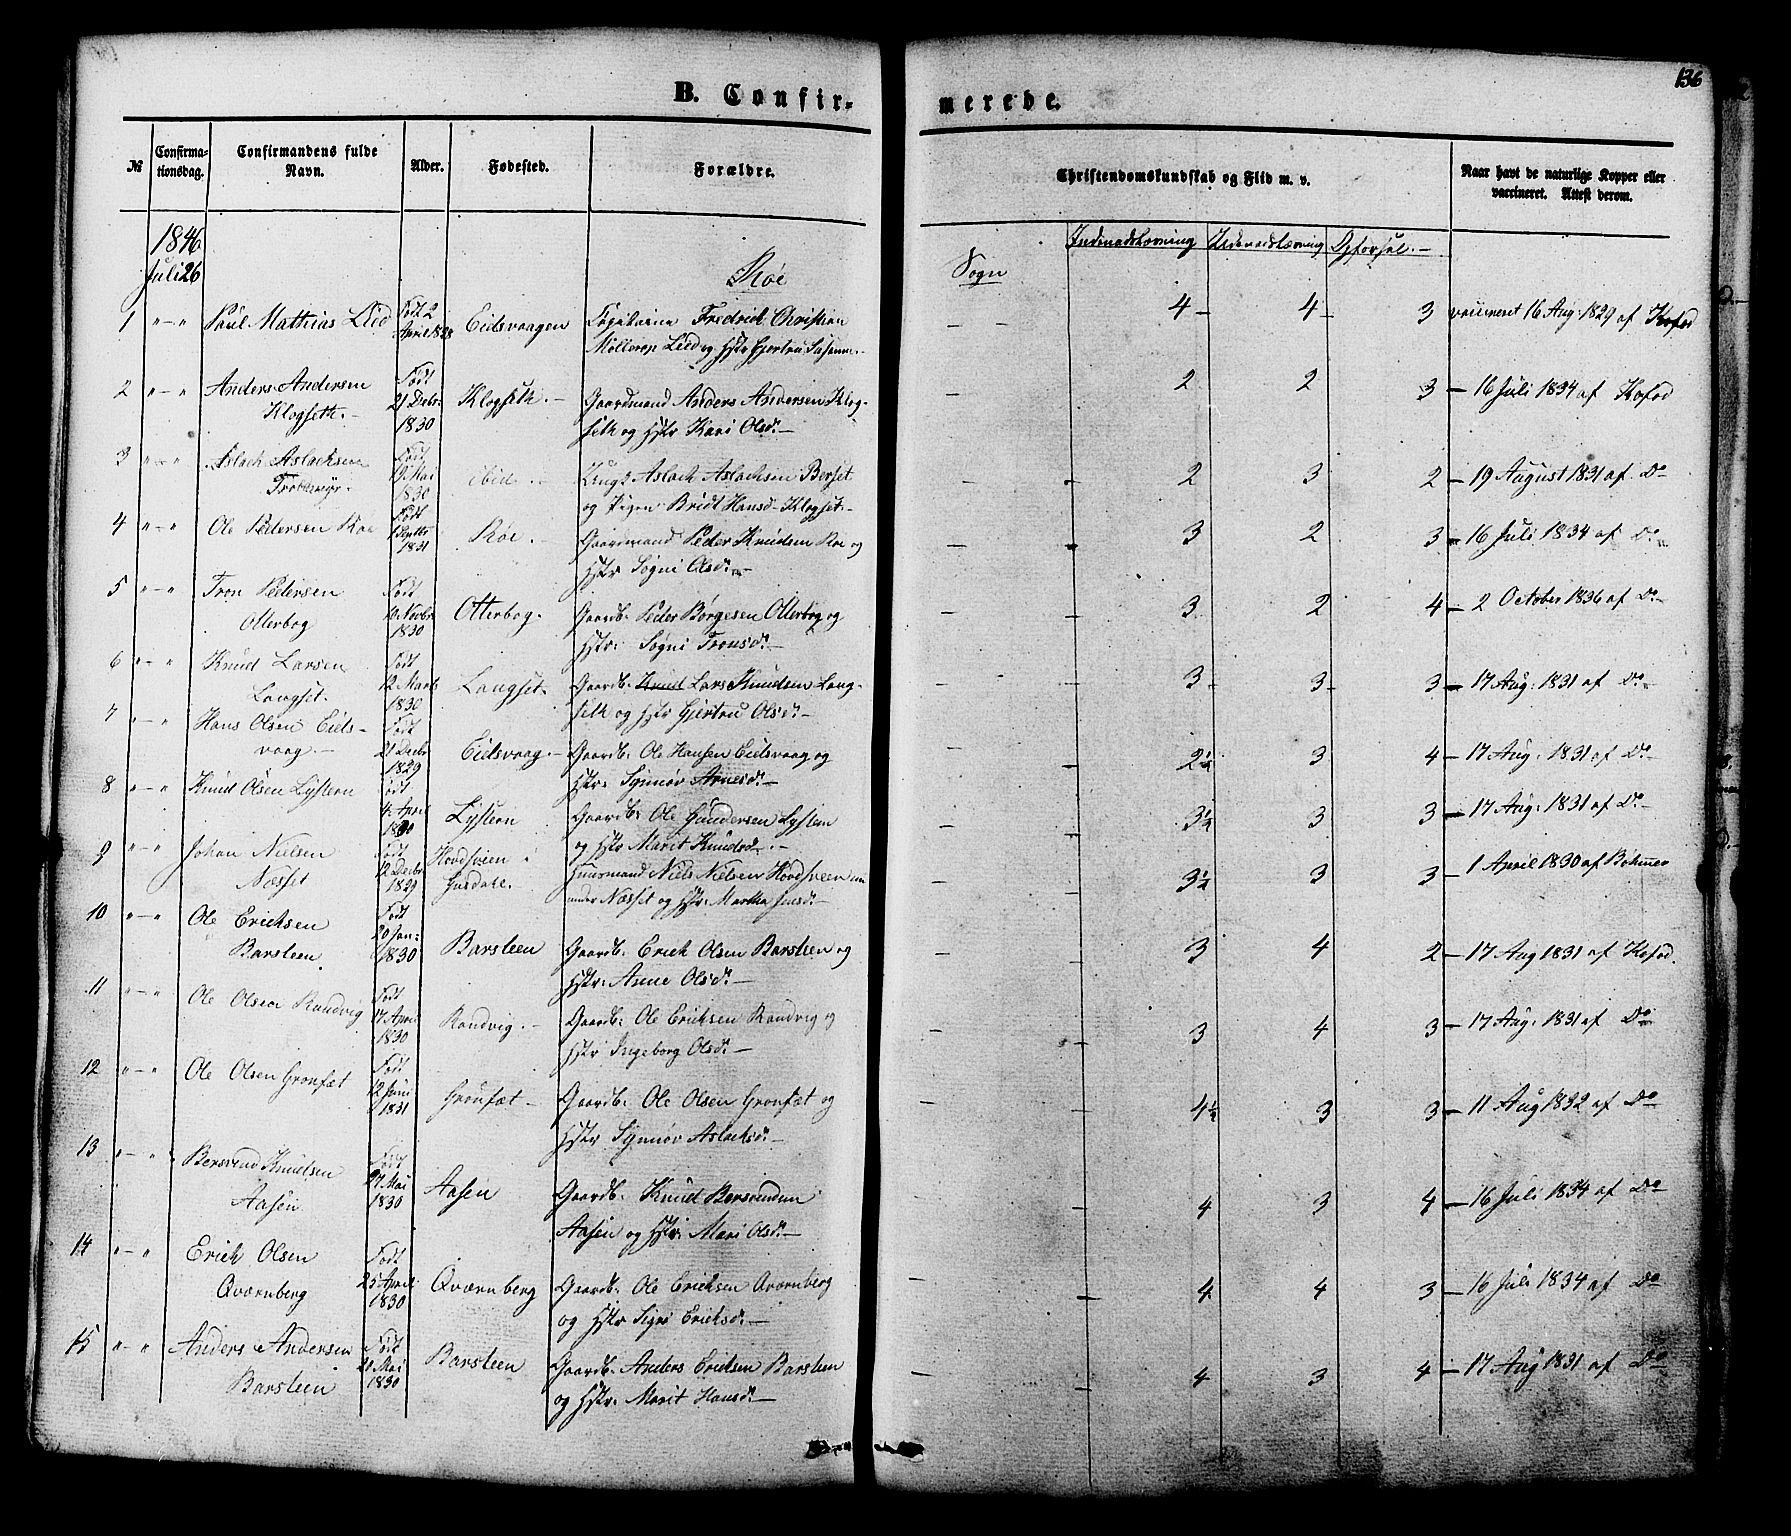 136
B. Confir-
merede.
№
Confirma-
tionsdag.
Confirmandens fulde
Navn.
Alder.
Fødested.
Forældre.
Christendomskundskab og Flid m. v.
Naar havt de naturlige Kopper eller
vaccineret. Attest derom.
1846
Juli 26
Røe
Sogn
Indenadslæsning
Udenadslæsning
Opførsel.
1 " — " Paul Mathias Lied Født 2 April 1828 Eidsvaagen
Fredrik Christian
Møllerop Lied og Hstr Gjertru
4 4 3 vaccineret 16 Aug: 1829 af Kofod
2 " — " Anders Andersen
Klogseth. Født 21 Debr: 1830 Klogseth. Gaardmand Anders Andersen Klog-
seth og Hstr Kari Olsd:
2 2 3 — 16 Juli 1834 af Kofod
3 " — " Aslach Aslachsen
Født 19 Mai 1830 ibid. Ungk Aslach Aslachsen Berset
og Pigen Bridt Hansd. Klogset.
2 3 2 — 19 August 1831 af Do
4 " — " Ole Pedersen Roe Født 1 Septbr 1831 Røe. Gaardmand Peder Knudsen Roe og
Hstr Sogni Olsd:
3 2 3 — 16 Juli 1834 af Do
5 " — " Tron Pedersen
Otterbog Født 10 Novbr 1830 Otterbog. Gaardb: Peder Børgesen Otterbog og
Hstr: Søgni Tronsd:
3 2 4 — 2 October 1836 af Do
6 " — " Knud Larsen
Langset. Født 12 Marts 1830 Langset. Gaardb: Knud Lars Knudsen Lang-
seth og Hstr Gjertru Olsd:
3 3 3 — 17 Aug: 1831 af Do
7 " — " Hans Olsen Eids-
vaag Født 21 Decbr 1829 Eidsvaag Gaardb: Ole Hansen Eidsvaag og
Hstr: Synnøv Arnesd:
2½ 3 4 — 17 Aug: 1831 af Do
8 " — " Knud Olsen Lystern Født 4 April 1830 Lystern Gaardb: Ole Gundersen Lystern
og Hstr Marit Knudsd.
3½ 3 3 — 17 Aug: 1831 af Do
9 " — " Johan Nielsen
Næsset Født 12 Decbr 1829 Hovdsveen i
Huusmand Niels Nielsen Hovdsveen
under Næsset og Hstr: Martha Jensd:
3½ 3 3 — 1 April 1830 af Bøhmer
10 " — " Ole Erichsen
Barsteen Født 20 Jan: 1830 Barsteen Gaardb: Erich Olsen Barsteen og
Hstr: Anne Olsd:
3 4 2 — 17 Aug 1831 af Kofod.
11 " — " Ole Olsen Randvig Født 17 April 1830 Randvig. Gaardb: Ole Erichsen Randvig og
Hstr Ingeborg Olsd:
3 4 3 — 17 Aug: 1831 af Do
12 " — " Ole Olsen Gronfæt Født 12 Juni 1831 Gronfæt Gaardb: Ole Olsen Gronfæt og
Hstr Synnøv Aslachsd:
4½ 3 3 — 11 Aug 1832 af Do
13 " — " Bersvend Knudsen
Aasen Født 27 Mai 1830 Aasen Gaardb: Knud Bersvendsen
Aasen og Hstr: Mari Olsd:
4 3 4 — 16 Juli 1834 af Do
14 " — " Erich Olsen
Qværnberg Født 25 April 1830 Qværnberg Gaardb: Ole Erichsen Qværnberg
og Hstr Sigri Erichsd:
4 4 3 — 16 Juli 1834 af Do
15 " — " Anders Andersen
Barsteen Født 20 Mai 1830 Barsteen Gaardb: Anders Erichsen Barsteen
og Hstr: Marit Hansd:
4 3 4 — 17 Aug 1831 af Do